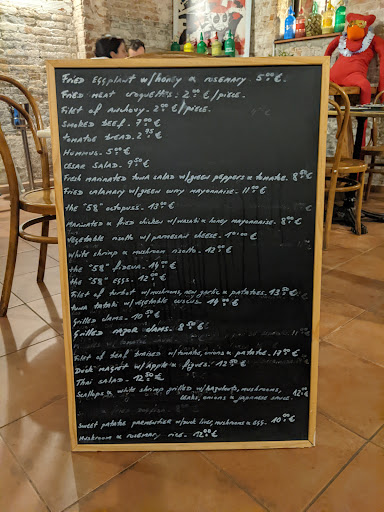 Fried Eggplant w/honey & rosemary. 5.00€
Fried meat croquettes. 2.00€/piece.
Filet of anchovy. 2.00€/piece.
Smoked beef. 7.00€
Tomatoe bread. 2.95€
Hummus. 5.00€
Cesar salad. 9.00€
Fresh marinated tuna salad w/green peppers & tomatoe. 8.00€
Fried calamary w/green curry mayonnaise. 11.00€
the "58" octopuss. 13.00€
Marinated & fried chicken w/wasabi & honey mayonnaise. 8.00€
Vegetable risotto w/parmesan cheese. 10.00€
White shrimp & mushroom risotto. 12.00€
the "58" fideua. 14.00€
the "58" eggs. 12.00€
Filet of turbot w/mushrooms, new garlic & potatoes. 13.50€
tuna tataki w/vegetable cuscus. 14.00€
Grilled clams. 10.50€
Grilled razor clams. 8.00€
Filet of beef braised w/tomatoe, onions & potatoe. 17.00€
Duck magret w/apple & figues. 12.50€
Thai salad. 12.50€
Scallops & white shrimp grilled w/ mushrooms,
leaks, onions & japanese sauce. 12.00€
Sweet potatoe parmentier w/duck liver, mushrooms & egg. 10.00€
Mushroom & rosemary rice. 12.00€